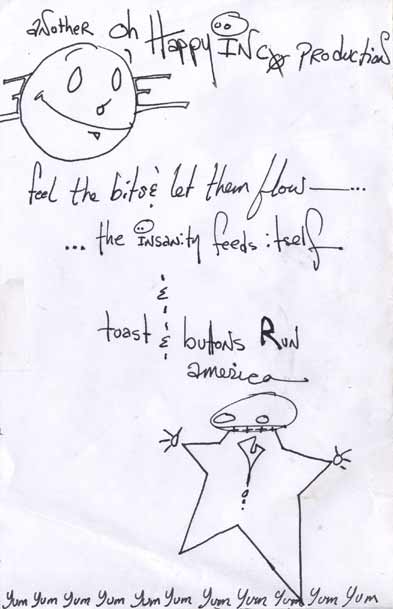 another oh Happy INC PRODUCTION
feel the bits & let them flow ...
... the INSANITY feeds itself
&
toast & buttons RUN
america
yum yum yum yum yum yum yum yum yum yum yum